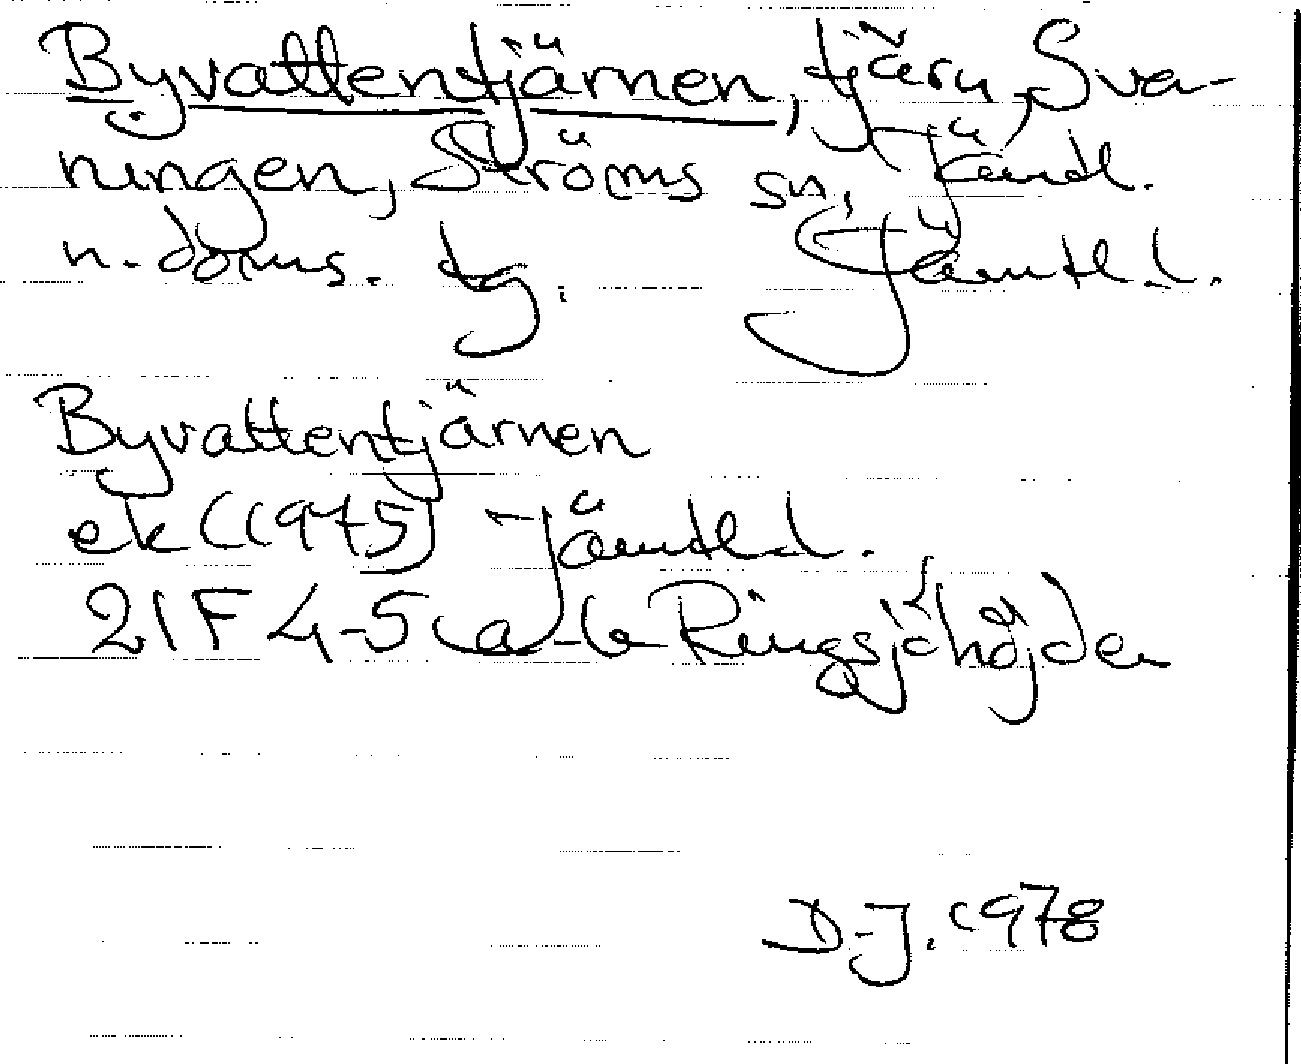 Byvattentjärnen, tjärn, Sva-
ningen, Ströms sn, Jämtl.
n. doms. tg. Jämtl. l.
Byvattentjärnen
ek (1975) Jämtl. l.
21F 4-5 a-b Ringsjöhöjden
D-J. 1978